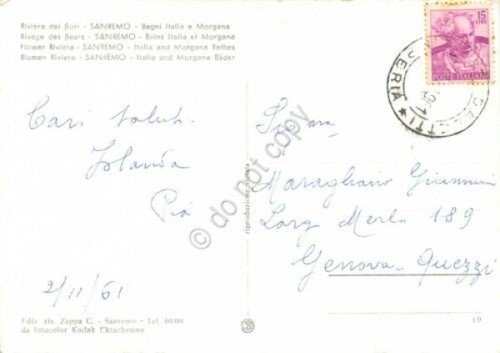 Riviera dei fiori - SANREMO - Bagni Italia e Morgana
Rivage des fleurs - SANREMO - Bains Italia et Morgana
Flower Riviera - SANREMO - Italia and Morgana Bathes
Blumen Riviera - SANREMO - Italia und Morgana Bäder
15
LIRE
POSTE ITALIANE
SERIA
Cari saluti
Jolanda
Pia
2/11/61
Maragliano Giannini
Larg Merlo 189
Genova-Quezzi
do not copy
riproduzione
Ediz. ris. Zappa C. - Sanremo - Tel. 60-09
da fotocolor Kodak Ektachrome
19